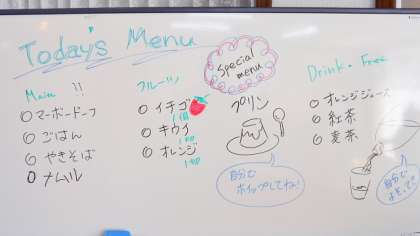 Today's Menu
Main !!
○ マーボードーフ
○ ごはん
○ やきそば
○ ナムル
フルーツ
○ イチゴ
1個
○ キウイ
1コ
○ オレンジ
1コ
Special
menu
プリン
自分で
ホイップしてね!
Drink・Free
○ オレンジジュース
○ 紅茶
○ 麦茶
自分で